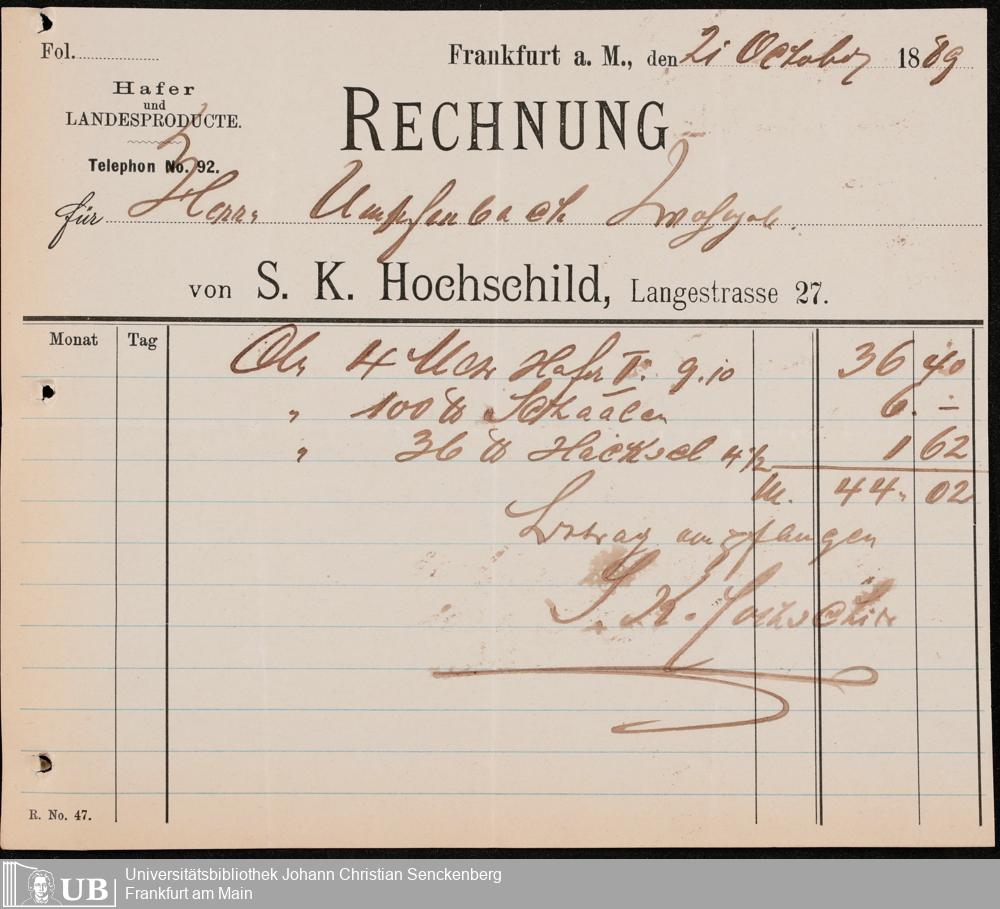 Fol.
Frankfurt a. M., den 21 October 1889
Hafer
und
LANDESPRODUCTE.
Telephon No. 92.
RECHNUNG
für Herrn Umpfenbach
von S. K. Hochschild, Langestrasse 27.
Monat Tag
4 Hafer II. 9.10 36 40
" 100 ℔ Schaalen 6. –
" 36 ℔ Häcksel 4½ 1 62
M. 44. 02
Betrag empfangen
S. K. Hochschild
R. No. 47.
UB
Universitätsbibliothek Johann Christian Senckenberg
Frankfurt am Main